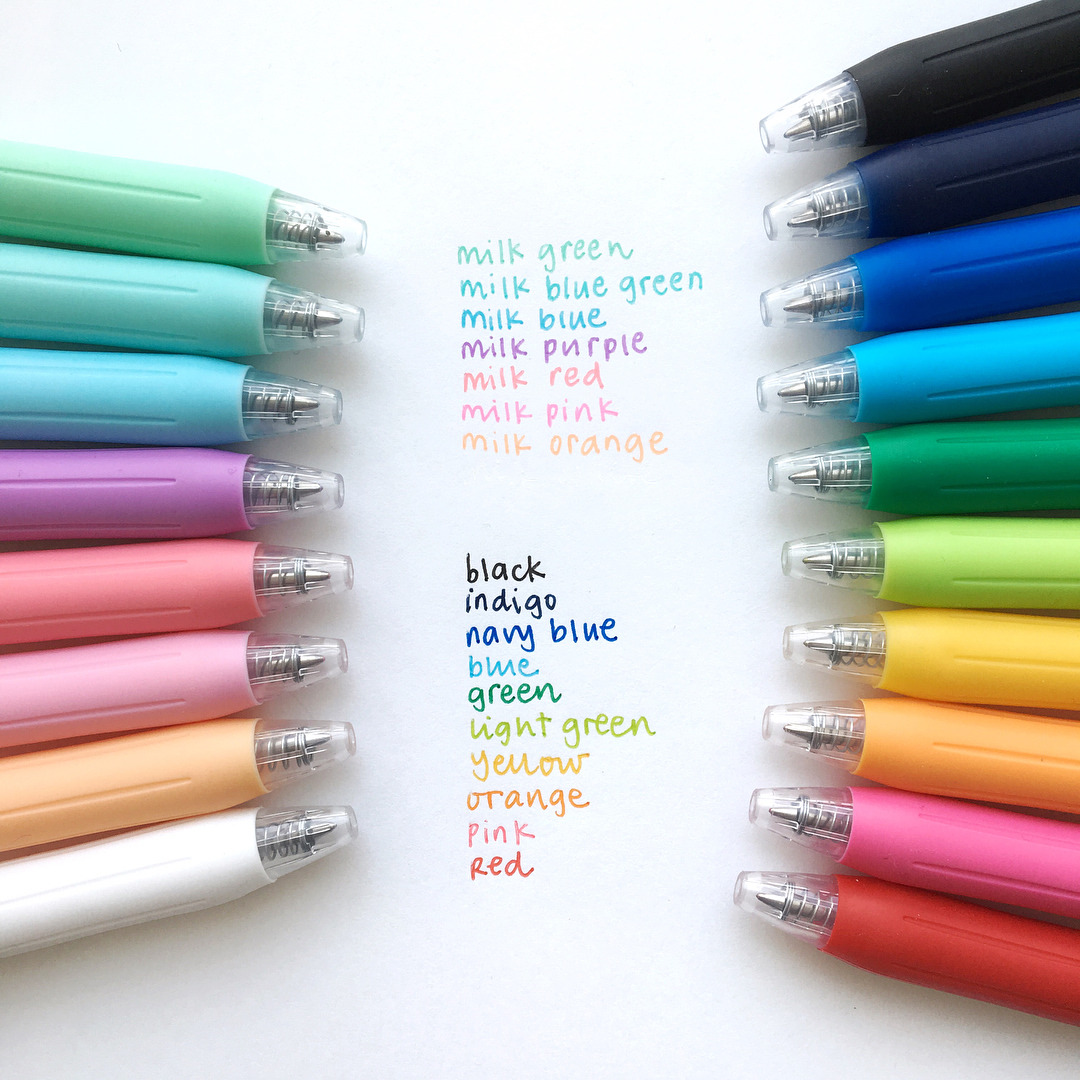 milk green
milk blue green
milk blue
milk purple
milk red
milk pink
milk orange
black
indigo
navy blue
blue
green
light green
yellow
orange
pink
red